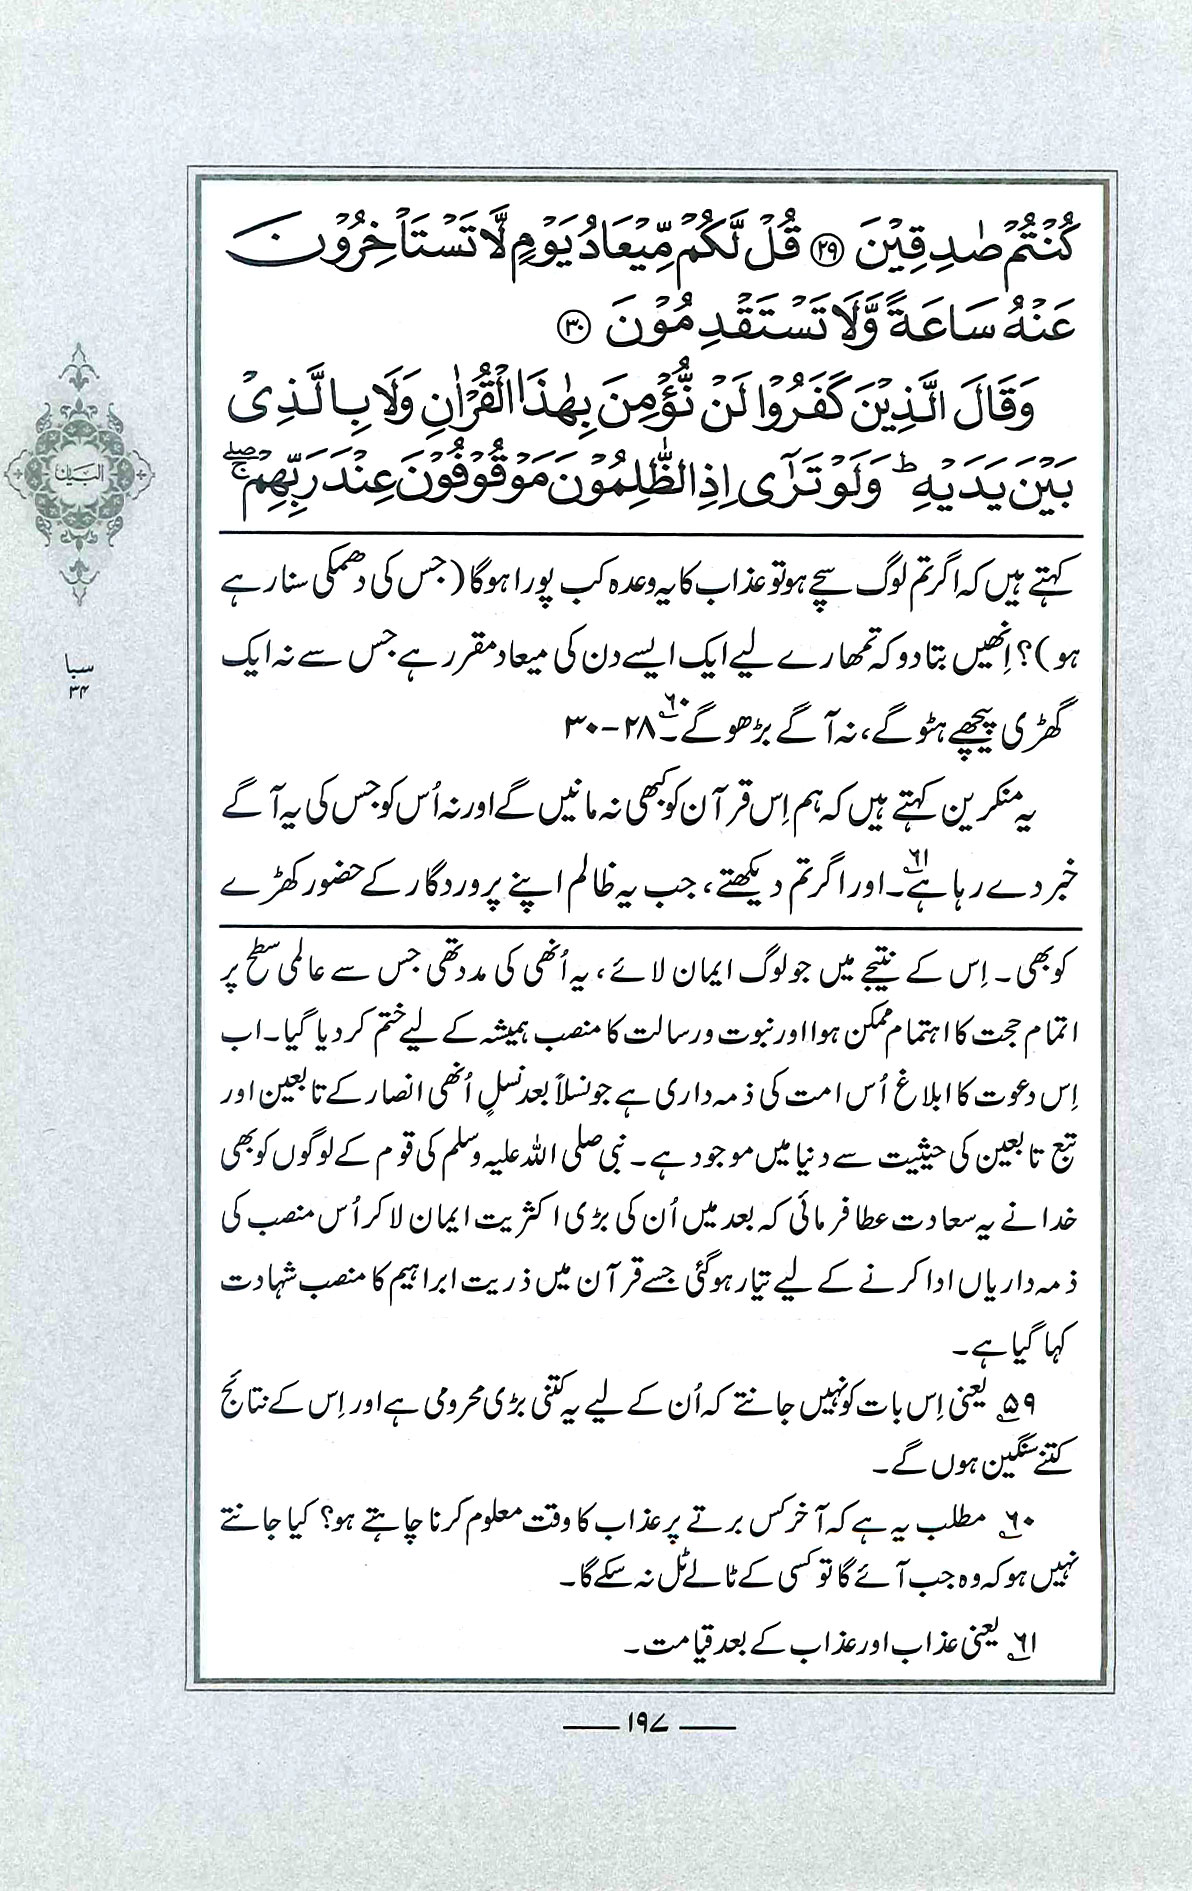 كُنْتُمْ صٰدِقِيْنَ ﴿۲۹﴾ قُلْ لَّكُمْ مِّيْعَادُ يَوْمٍ لَّا تَسْتَاْخِرُوْنَ
عَنْهُ سَاعَةً وَّلَا تَسْتَقْدِمُوْنَ ﴿۳۰﴾
وَقَالَ الَّذِيْنَ كَفَرُوْا لَنْ نُّؤْمِنَ بِهٰذَا الْقُرْاٰنِ وَلَا بِالَّذِيْ
بَيْنَ يَدَيْهِ ؕ وَلَوْ تَرٰٓى اِذِ الظّٰلِمُوْنَ مَوْقُوْفُوْنَ عِنْدَ رَبِّهِمْ ۚۖ
کہتے ہیں کہ اگر تم لوگ سچے ہو تو عذاب کا یہ وعدہ کب پورا ہو گا (جس کی دھمکی سنا رہے
ہو)؟ اِنھیں بتا دو کہ تمھارے لیے ایک ایسے دن کی میعاد مقرر ہے جس سے نہ ایک
گھڑی پیچھے ہٹو گے، نہ آگے بڑھو گے۔۶۰ ۲۸-۳۰
یہ منکرین کہتے ہیں کہ ہم اِس قرآن کو کبھی نہ مانیں گے اور نہ اُس کو جس کی یہ آگے
خبر دے رہا ہے۔۶۱ اور اگر تم دیکھتے، جب یہ ظالم اپنے پروردگار کے حضور کھڑے
کو بھی۔ اِس کے نتیجے میں جو لوگ ایمان لائے، یہ اُنھی کی مدد تھی جس سے عالمی سطح پر
اتمام حجت کا اہتمام ممکن ہوا اور نبوت و رسالت کا منصب ہمیشہ کے لیے ختم کر دیا گیا۔ اب
اِس دعوت کا ابلاغ اُس امت کی ذمہ داری ہے جو نسلاً بعد نسلٍ اُنھی انصار کے تابعین اور
تبع تابعین کی حیثیت سے دنیا میں موجود ہے۔ نبی صلی اللہ علیہ وسلم کی قوم کے لوگوں کو بھی
خدا نے یہ سعادت عطا فرمائی کہ بعد میں اُن کی بڑی اکثریت ایمان لا کر اُس منصب کی
ذمہ داریاں ادا کرنے کے لیے تیار ہو گئی جسے قرآن میں ذریت ابراہیم کا منصب شہادت
کہا گیا ہے۔
۵۹ یعنی اِس بات کو نہیں جانتے کہ اُن کے لیے یہ کتنی بڑی محرومی ہے اور اِس کے نتائج
کتنے سنگین ہوں گے۔
۶۰ مطلب یہ ہے کہ آخر کس برتے پر عذاب کا وقت معلوم کرنا چاہتے ہو؟ کیا جانتے
نہیں ہو کہ وہ جب آئے گا تو کسی کے ٹالے ٹل نہ سکے گا۔
۶۱ یعنی عذاب اور عذاب کے بعد قیامت۔
البیان
سبا
۳۴
۱۹۷